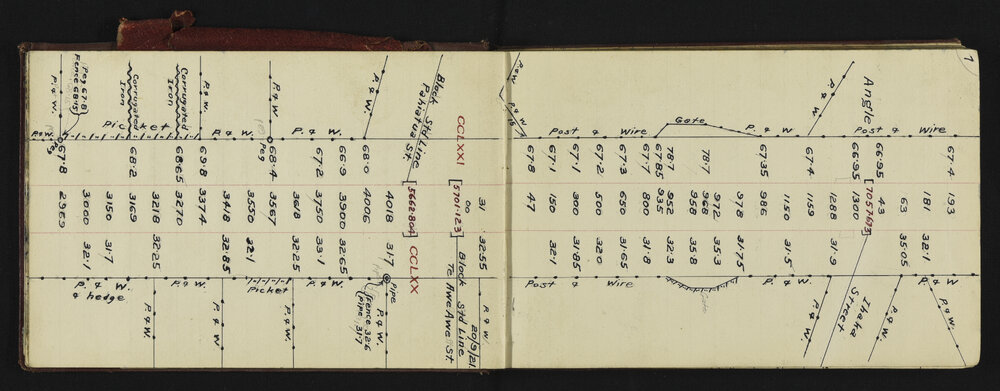 7
P. & W.
Peg 67·8
Fence 68·15
Corrugated
Iron
Corrugated
Iron
P. & W.
P. & W.
P. & W.
Block Std Line
Pahiatua St.
P. & W.
Picket
P. & W.
Peg
P. & W.
CCLXXI
67·8
68·2
68·65
69·8
68·4
67·2
66·9
68·0
2969
3000
3150
3169
3218
3270
3374
3418
3550
3567
3618
3750
3900
4006
4018
[5668·80]
[5701·23]
00
31
32·1
31·7
32·25
32·85
32·1
32·25
33·1
32·65
31·7
CCLXX
32·55
P. & W.
& hedge
P. & W.
Picket
P. & W.
Pipe
fence 32·6
pipe 31·7
P. & W.
P. & W.
P. & W.
P. & W.
Block Std Line
To Awe Awe St.
20/9/21
P. & W.
P. & W.
P. & W.
Angle
Post & Wire
Gate
P. & W.
Post & Wire
67·8
67·1
67·1
67·2
67·3
67·7
67·85
78·7
78·7
67·35
67·4
66·95
66·95
67·4
47
150
300
500
650
800
935
952
958
968
972
978
986
1150
1159
1288
1300
[7057·63]
43
63
181
193
32·1
31·85
32·0
31·65
31·8
32·3
35·8
35·3
31·75
31·5
31·9
35·05
32·1
Post & Wire
Gate
P. & W.
P. & W.
Ihaka
Street
P. & W.
P. & W.
P. & W.